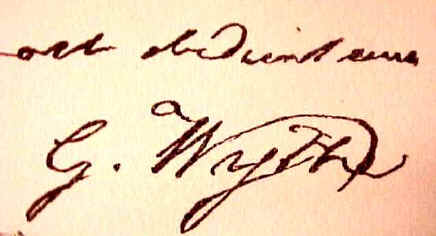 obedient serv
G. Wythe